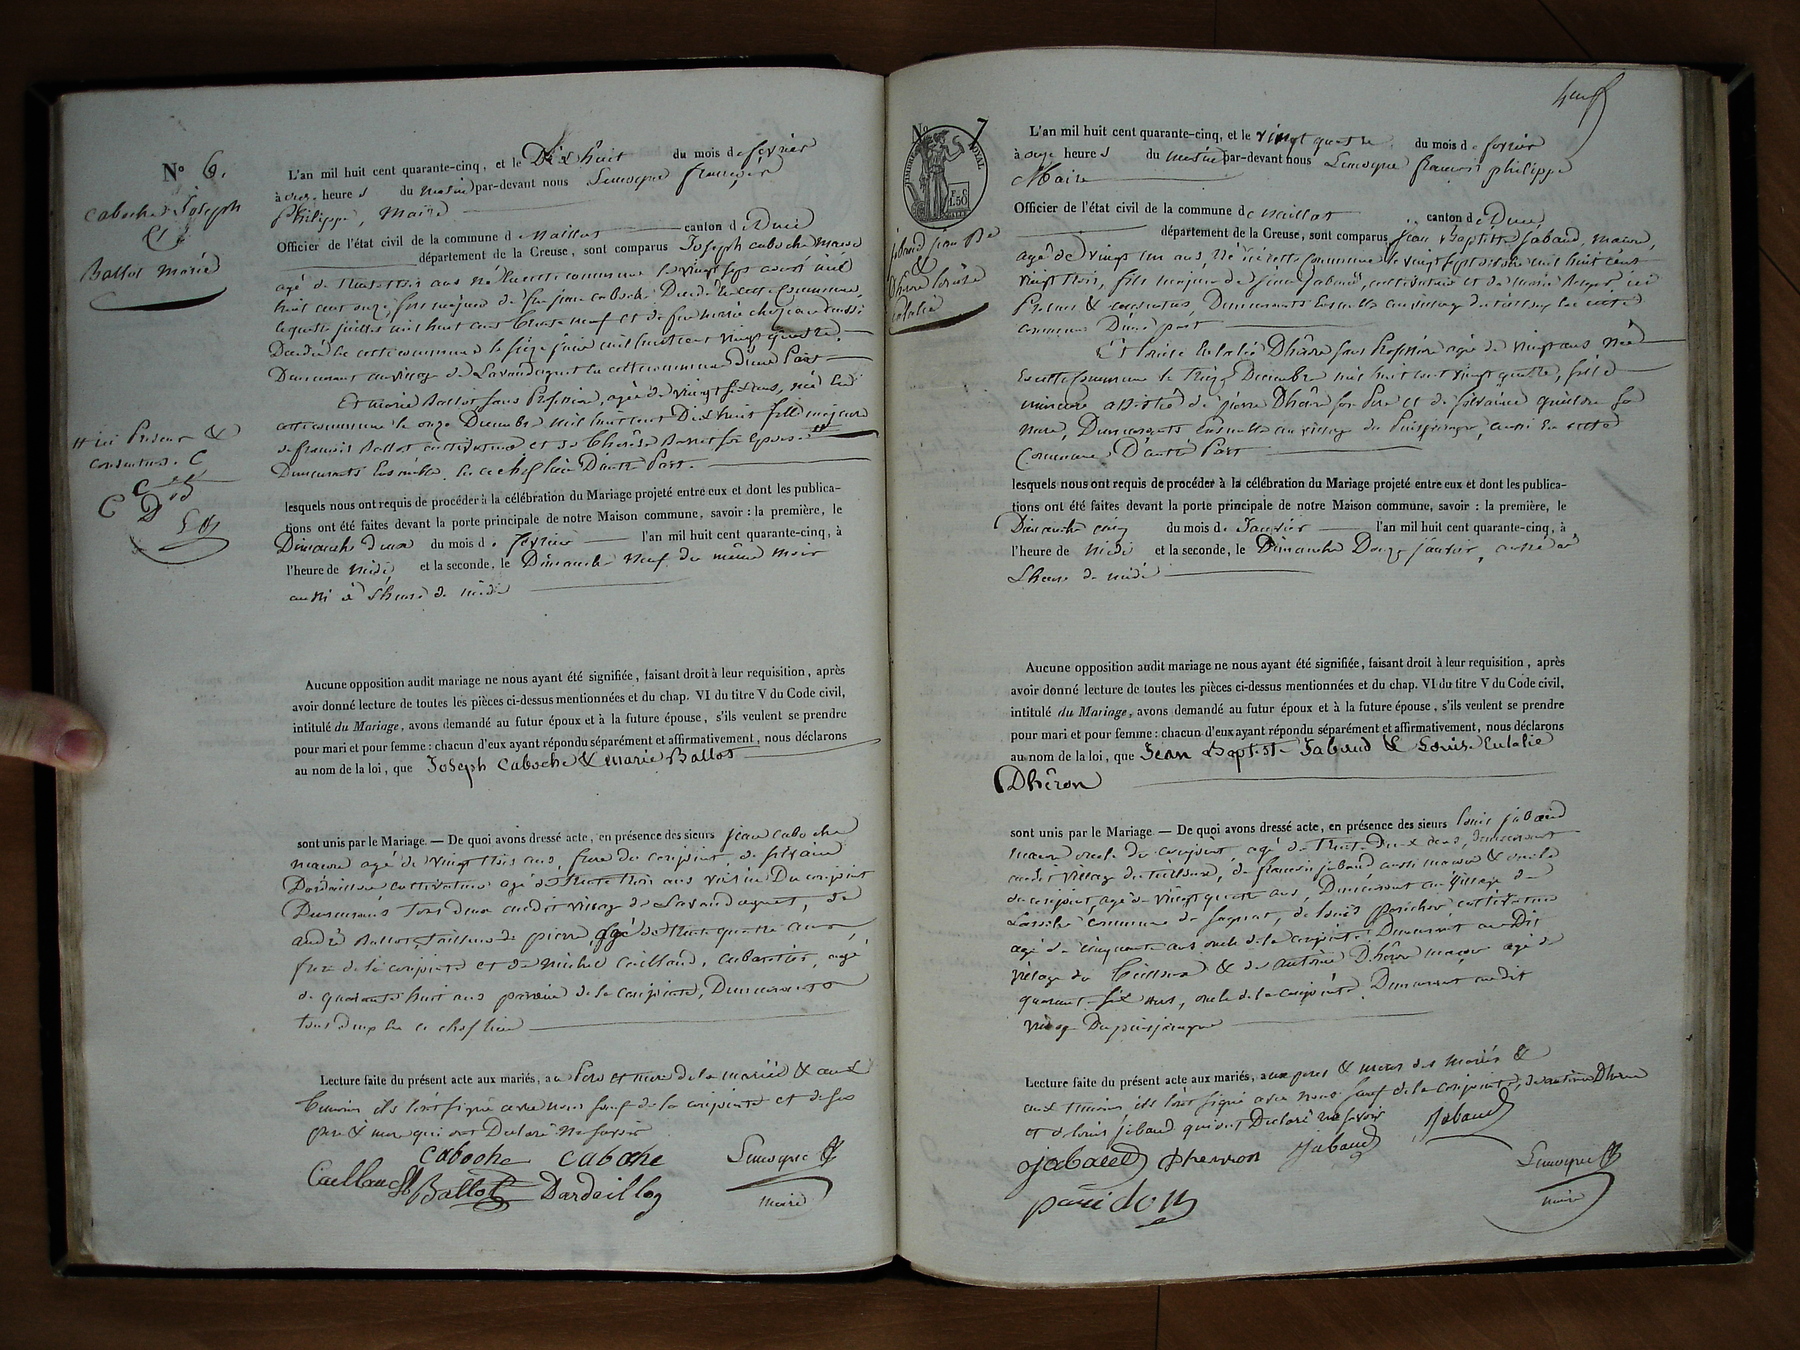 N° 6.
Caboche Joseph
&
Ballot Marie
L'an mil huit cent quarante-cinq, et le Dix huit du mois de février
à onze heures du matin par-devant nous Lenoyne françois
Philippe, Maire
Officier de l'état civil de la commune de Naillat canton de Dun
département de la Creuse, sont comparus Joseph caboche macon
agé de trente trois ans né En cette commune le vingt sept aout mil
huit cent onze, fils majeur de feu jean caboche Décédé En cette commune,
le quatre juillet mil huit cent trente neuf et de feu marie aussi
Décédée En cette commune le seize juin mil huit cent vingt quatre.
Demeurant au village de Lavaudaguet En cette commune D'une Part
Et marie Ballot sans Profession, agée de vingt six ans, née En
cette commune le onze Decembre mil huit cent Dix huit fille majeure
de françois Ballot cultivateur et de Thérèse son epouse
Demeurants Ensemble En ce chef lieu D'autre Part.
ici Présens &
consentens. C
C D
lesquels nous ont requis de procéder à la célébration du Mariage projeté entre eux et dont les publica-
tions ont été faites devant la porte principale de notre Maison commune, savoir : la première, le
Dimanche deux du mois de février l'an mil huit cent quarante-cinq, à
l'heure de midi et la seconde, le Dimanche Neuf du même mois
aussi à L'heure de midi
Aucune opposition audit mariage ne nous ayant été signifiée, faisant droit à leur requisition, après
avoir donné lecture de toutes les pièces ci-dessus mentionnées et du chap. VI du titre V du Code civil,
intitulé du Mariage, avons demandé au futur époux et à la future épouse, s'ils veulent se prendre
pour mari et pour femme : chacun d'eux ayant répondu séparément et affirmativement, nous déclarons
au nom de la loi, que Joseph Caboche & Marie Ballot
sont unis par le Mariage. — De quoi avons dressé acte, en présence des sieurs jean caboche
macon agé de vingt trois ans, frere du conjoint, de silvain
Dardaillon cultivateur agé de trente trois ans voisin Du conjoint
Demeurants tous deux audit village de Lavaudaguet, de
andré Ballot, tailleur de pierre, agé de trente quatre ans,
frere de la conjointe et de Michel Caillaud, cabaretier, agé
de quarante huit ans parrain de la conjointe, Demeurants
tous deux En ce chef lieu
Lecture faite du présent acte aux mariés, au Pere et mere de la mariée & aux
temoins ils l'ont signé avec nous sauf de la conjointe et de ses
pere & mere qui ont Declaré Ne savoir
caboche caboche
Caillaud Ballot Dardaillon
Lenoyne
maire
N° 7
TIMBRE ROYAL
F. C.
1.50
jabaud jean Bte
&
Dhéron Louise
Eulalie
L'an mil huit cent quarante-cinq, et le vingt quatre du mois de fevrier
à onze heures du matin par-devant nous Lenoyne francois philippe
Maire
Officier de l'état civil de la commune de Naillat canton de Dun
département de la Creuse, sont comparus Jean Baptiste Jabaud, macon,
agé de vingt un ans, Né En cette Commune le vingt sept octobre mil huit cent
vingt trois, fils majeur de jean Jabaud, cultivateur et de marie ici
Présens & consentens, Demeurants Ensemble au village du tuilloux En cette
commune D'une part
Et Louise Eulalie Dhéron sans Profession agée de vingt ans née
En cette Commune le treize Decembre mil huit cent vingt quatre, fille
mineure assistée de pierre Dhéron son Pere et de silvaine sa
mere, Demeurants Ensemble au village du aussi En cette
Commune D'autre Part
lesquels nous ont requis de procéder à la célébration du Mariage projeté entre eux et dont les publica-
tions ont été faites devant la porte principale de notre Maison commune, savoir : la première, le
Dimanche cinq du mois de Janvier l'an mil huit cent quarante-cinq, à
l'heure de midi et la seconde, le Dimanche Douze janvier, aussi à
L'heure de midi
Aucune opposition audit mariage ne nous ayant été signifiée, faisant droit à leur requisition, après
avoir donné lecture de toutes les pièces ci-dessus mentionnées et du chap. VI du titre V du Code civil,
intitulé du Mariage, avons demandé au futur époux et à la future épouse, s'ils veulent se prendre
pour mari et pour femme : chacun d'eux ayant répondu séparément et affirmativement, nous déclarons
au nom de la loi, que Jean Baptiste Jabaud & Louise Eulalie
Dhéron
sont unis par le Mariage. — De quoi avons dressé acte, en présence des sieurs louis jabaud
macon oncle du conjoint, agé de trente Deux ans, demeurant
audit village du tuilloux, de francois jabaud, aussi macon & oncle
du conjoint, agé de vingt quatre ans, Demeurant au village de
commune de sagnat, de louis cultivateur
agé de cinquante ans oncle de la conjointe Demeurant au Dit
village du tuilloux & de antoine Dhéron macon agé de
quarante six ans, oncle de la conjointe Demeurant audit
village
Lecture faite du présent acte aux mariés, aux peres & meres des mariés &
aux temoins, ils l'ont signé avec nous sauf de la conjointe, de antoine Dhéron
et de louis jabaud qui ont Declaré ne savoir
Jabaud
Jabaud Dherron Jabaud
paridon
Lenoyne
maire